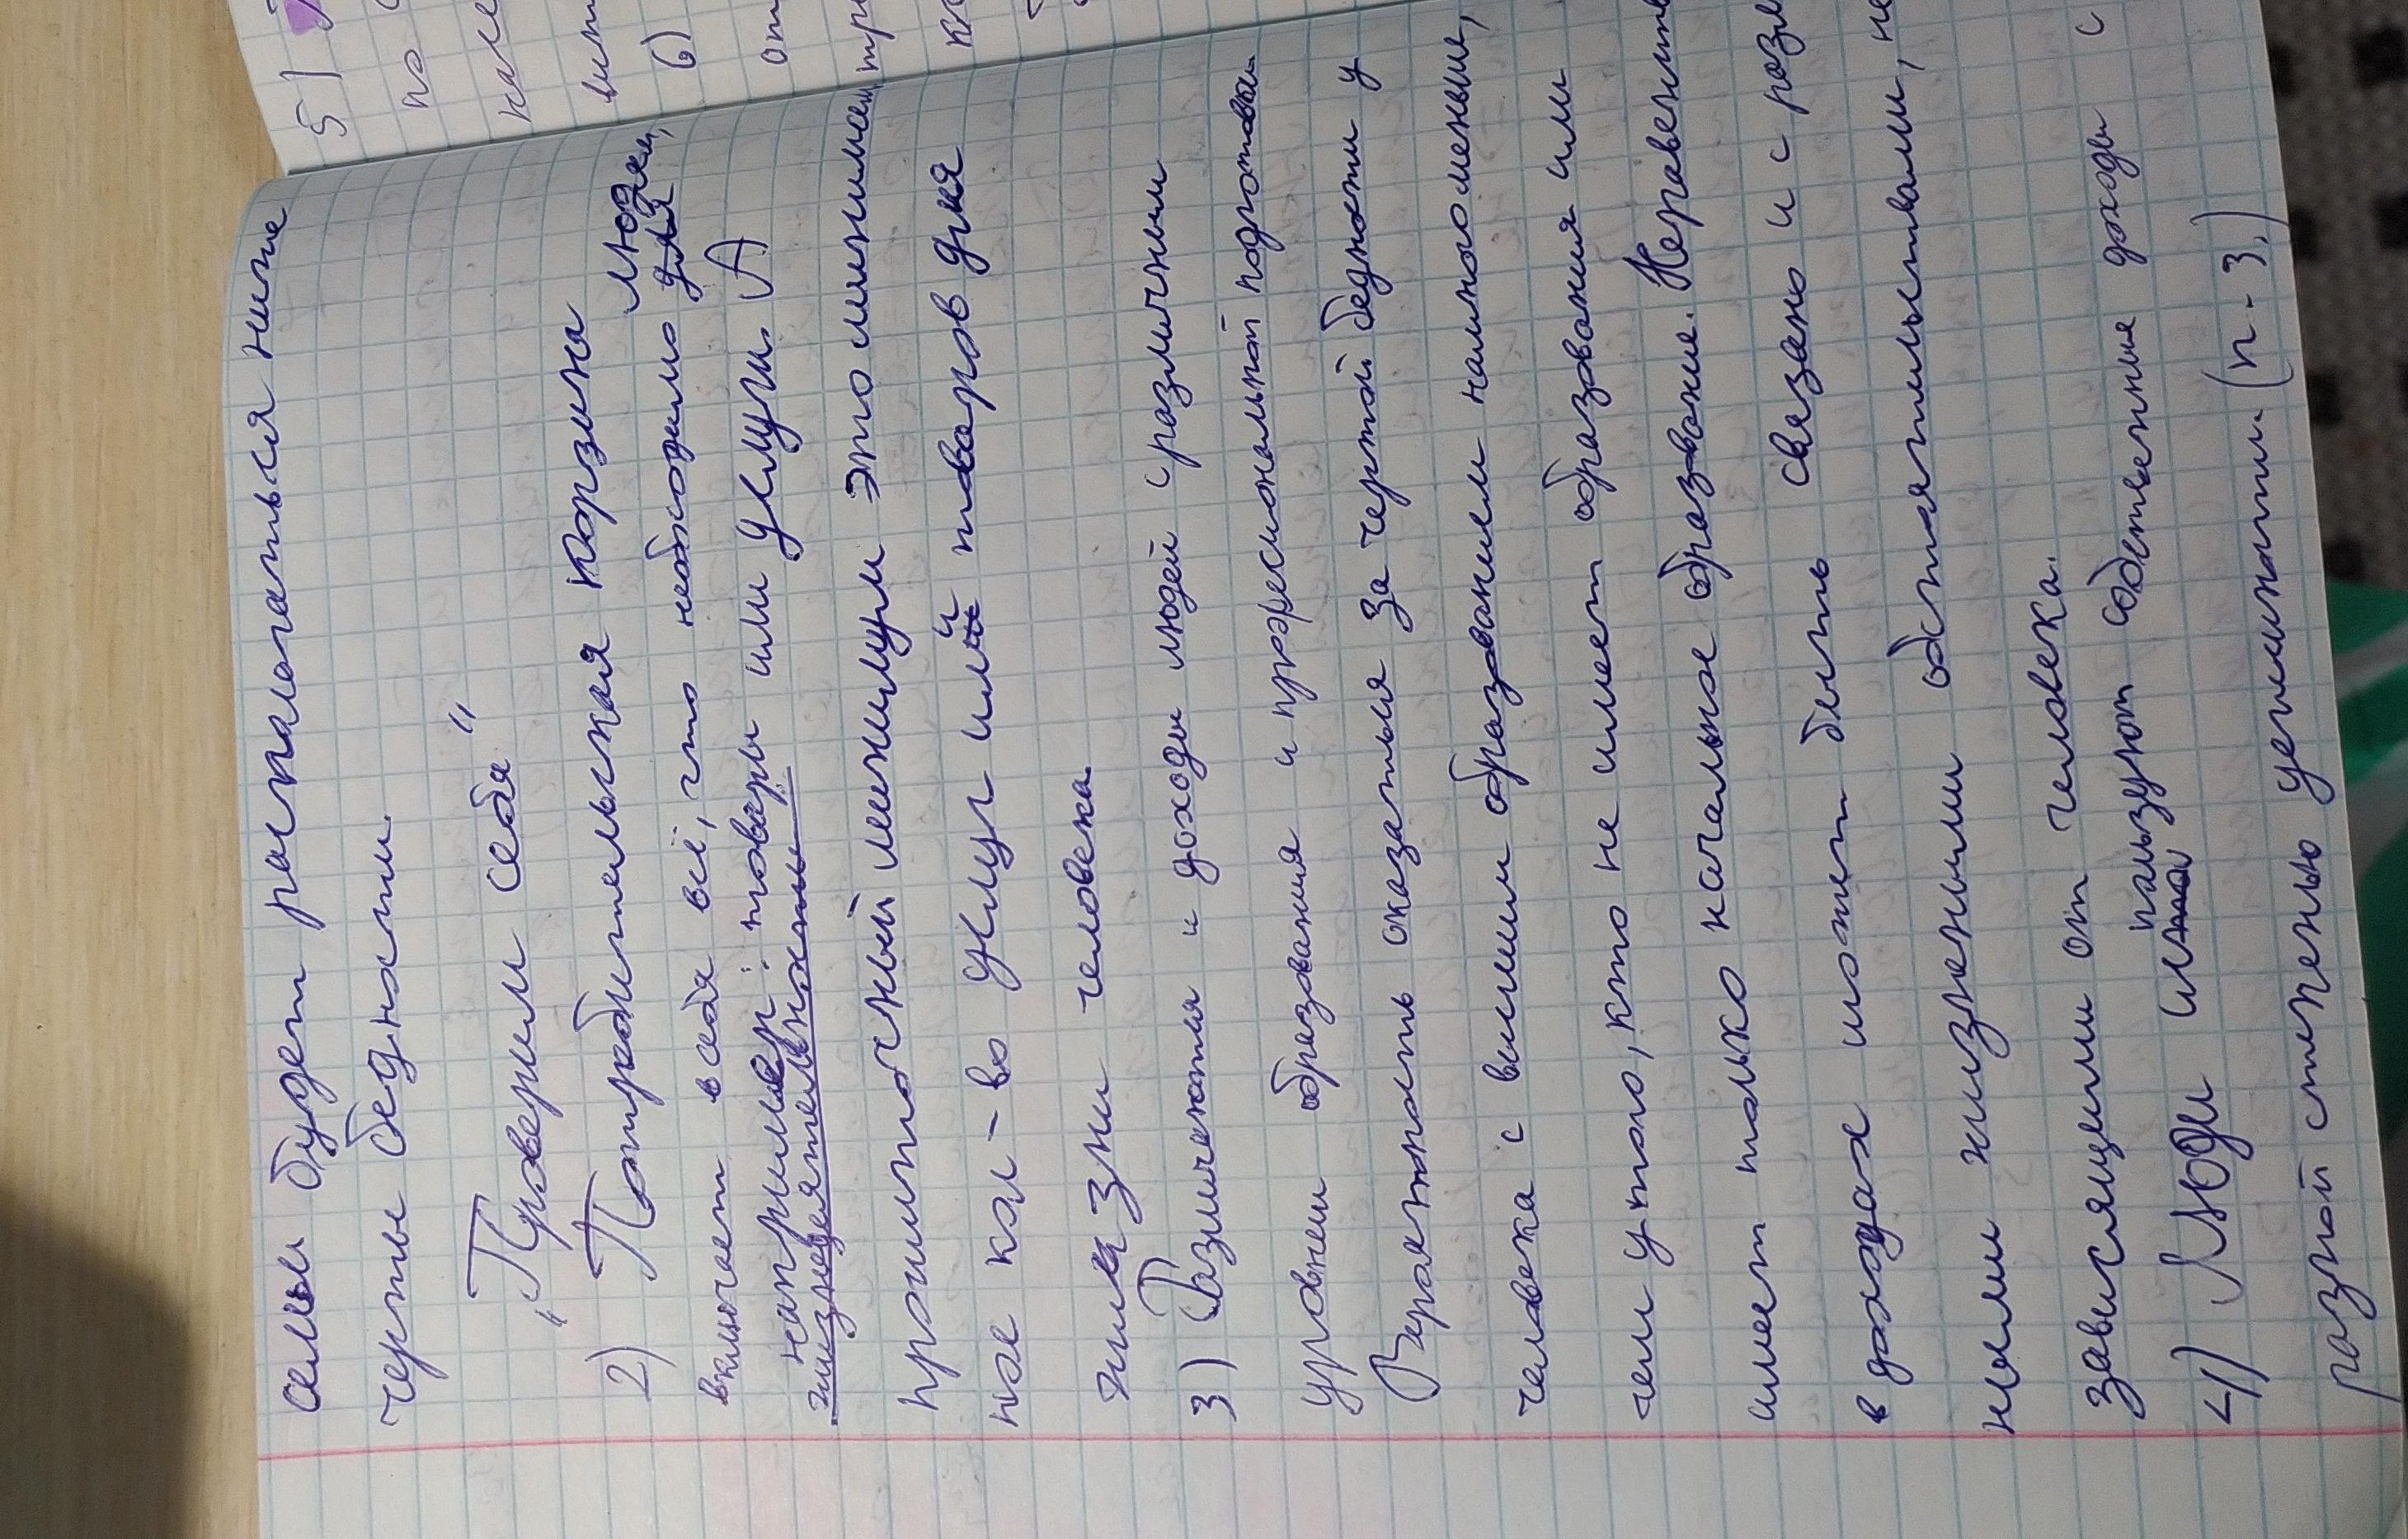 семьи будет располагаться ниже
черты бедности.
„Проверим себя"
2) Потребительская корзина
включает в себя всё, что необходимо людям,
например: товары или услуги. А
жизнедеятельности
прожиточный минимум это минималь
ное кол-во услуг и товаров для
жизни человека.
3) Различаются и доходы людей с различным
уровнем образования и профессиональной подготовки.
Вероятность оказаться за чертой бедности у
человека с высшим образованием намного меньше,
чем у того, кто не имеет образования или
имеет только начальное образование. Неравенств
в доходах может быть связано и с разл
ными жизненными обстоятельствами, не
зависящими от человека.
4) Люди используют собственные доходы с
разной степенью успешности. (п. 3.)
5)
по
6)